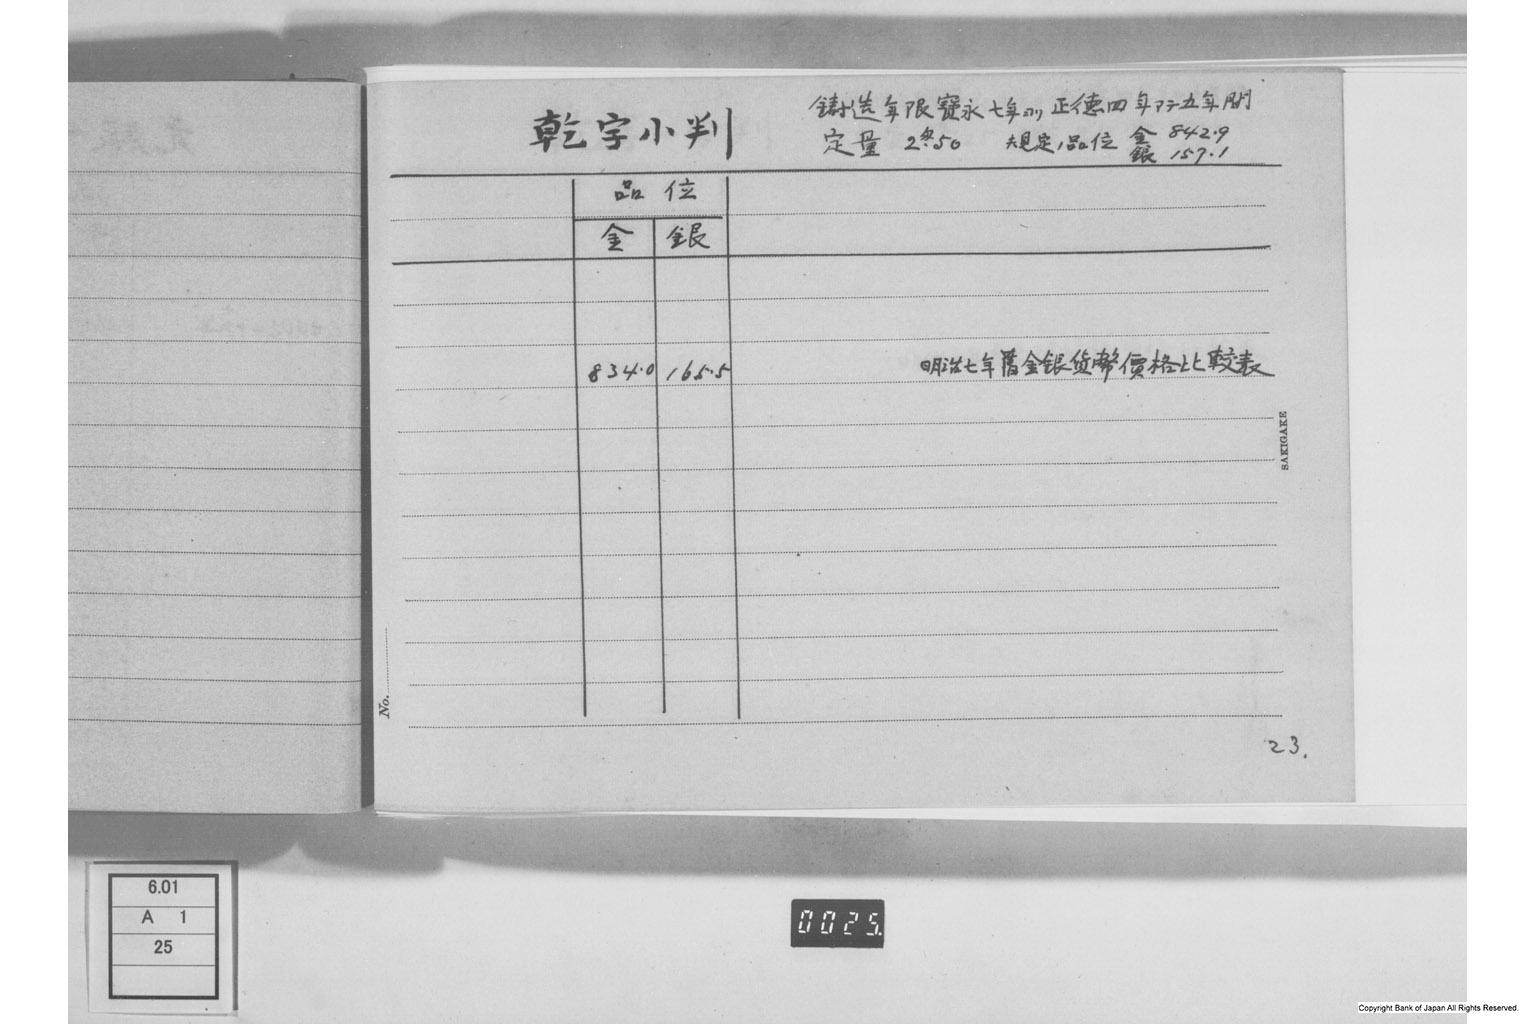 乾字小判
鋳造年限寶永七年ヨリ正徳四年マデ五年間
定量 2匁50 規定ノ品位 金 842.9
銀 157.1
品位
金 銀
834.0 165.5 明治七年舊金銀貨幣價格比較表
SAKIGAKE
No.
23.
6.01
A 1
25
0025.
Copyright Bank of Japan All Rights Reserved.